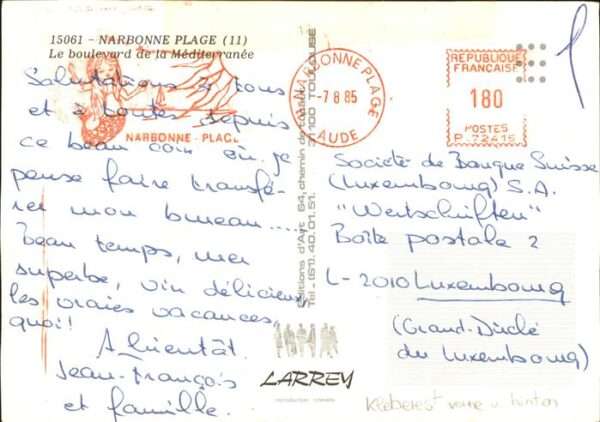 15061 - NARBONNE PLAGE (11)
Le boulevard de la Méditerranée
Salutations à tous
et à toutes depuis
ce beau coin où je
pense faire transfé-
rer mon bureau.....
Beau temps, mer
superbe, vin délicieux
les vraies vacances,
quoi!
A bientôt.
Jean-François
et famille.
NARBONNE - PLAGE
NARBONNE PLAGE
-7 8 85
AUDE
REPUBLIQUE
FRANÇAISE
180
POSTES
P. 72415
Editions d'Art 64, chemin de 31100 TOULOUSE
Tél. (61) 40.01.51.
LARREY
Société de Banque Suisse
(Luxembourg) S.A.
"Wertschriften"
Boîte postale 2
L-2010 Luxembourg
(Grand-Duché
du Luxembourg)